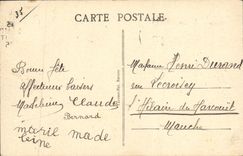 CARTE POSTALE
35
Bonne fête
Affectueux baisers
Madeleine Claude
Bernard
marie made
leine
Madame Henri Durand
rue
St Hilaire du Harcouët
Manche